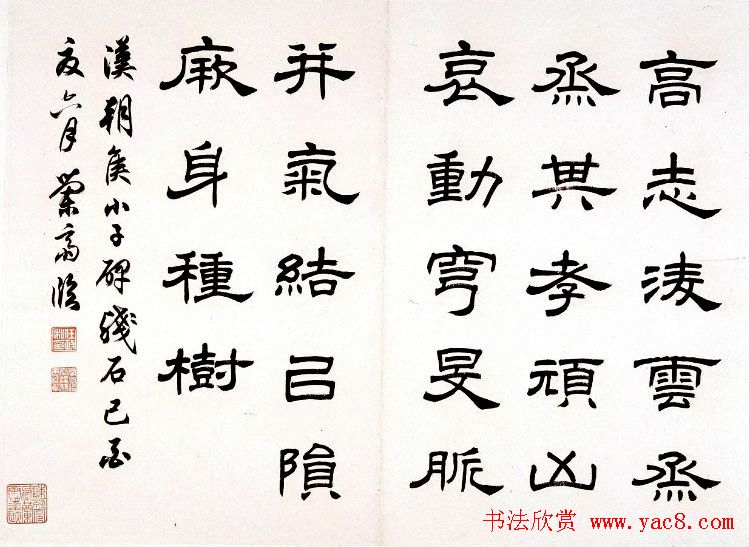 高志凌雲烝
烝其孝頑凶
哀動穹旻脈
并氣結已隕
厥身種樹
漢朝侯小子碑殘石己酉
夏六月蘭齋臨
书法欣赏 www.yac8.com